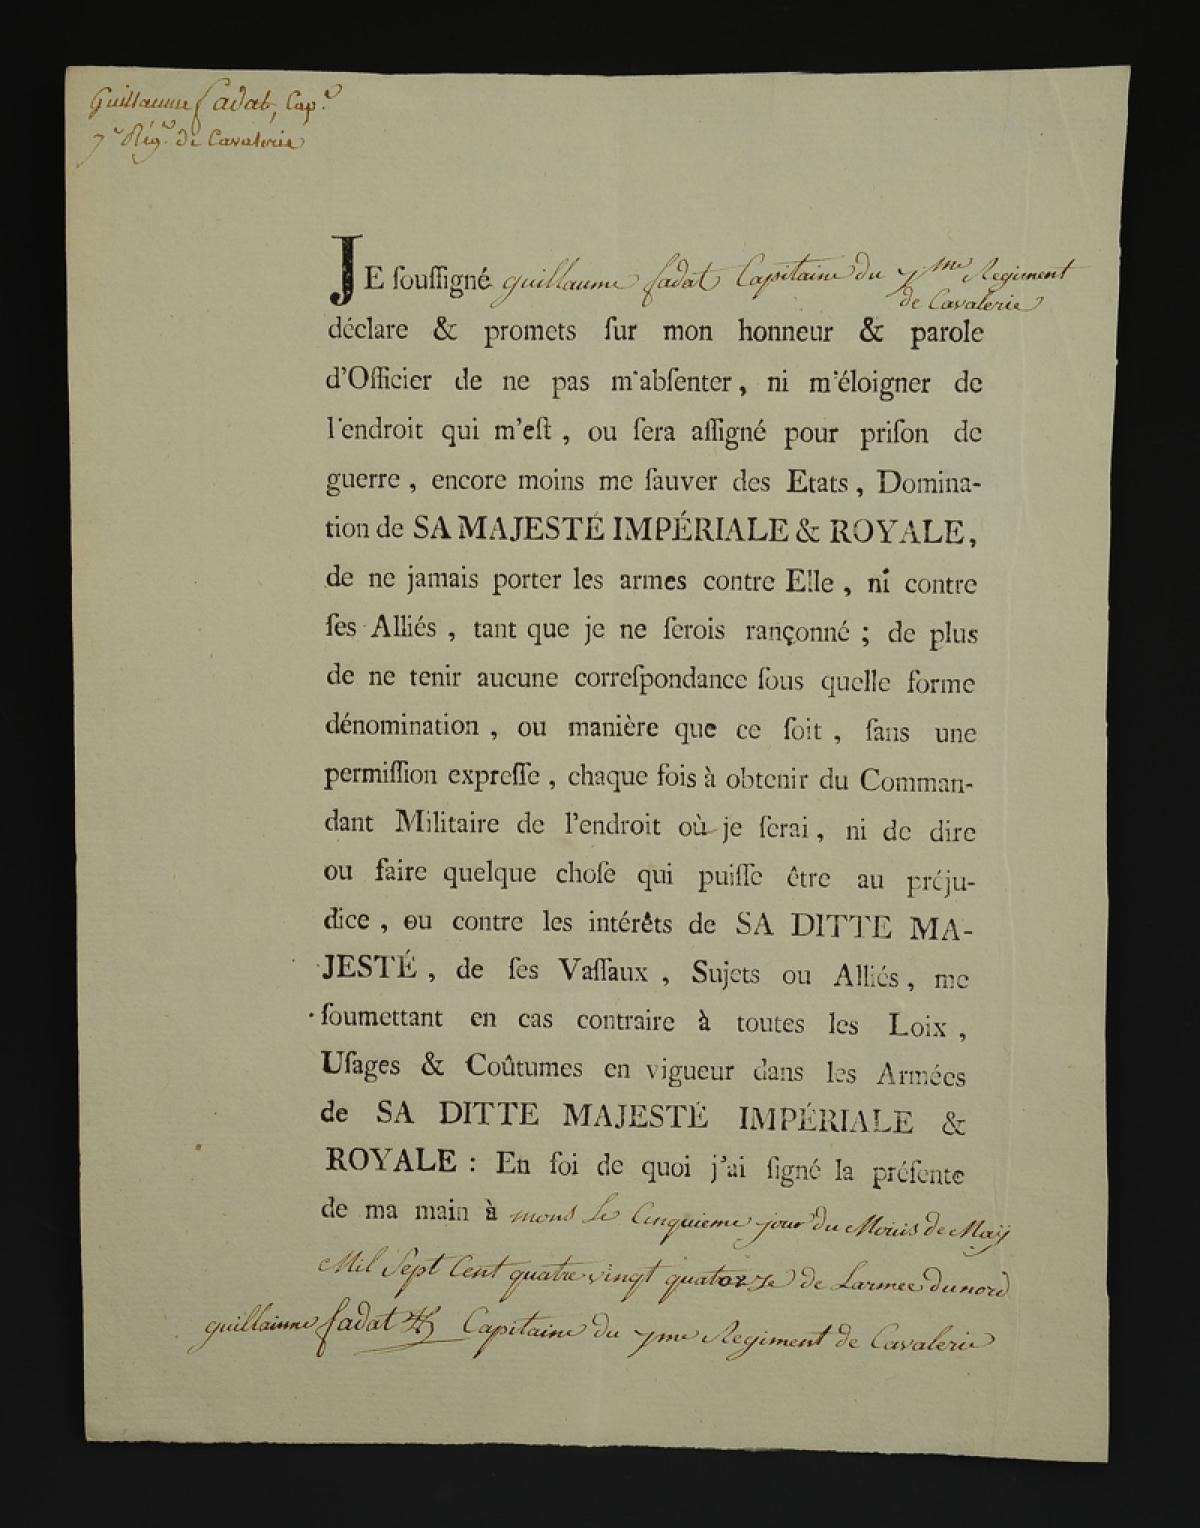 Guillaume fadat, Cap.e
7e Rég.e de Cavalerie
JE ſouſſigné guillaume fadat Capitaine du 7me Regiment
de Cavalerie
déclare & promets ſur mon honneur & parole
d'Officier de ne pas m'abſenter, ni m'éloigner de
l'endroit qui m'eſt, ou ſera aſſigné pour priſon de
guerre, encore moins me ſauver des Etats, Domina-
tion de SA MAJESTÉ IMPÉRIALE & ROYALE,
de ne jamais porter les armes contre Elle, ni contre
ſes Alliés, tant que je ne ſerois rançonné ; de plus
de ne tenir aucune correſpondance ſous quelle forme
dénomination, ou manière que ce ſoit, ſans une
permiſſion expreſſe, chaque fois à obtenir du Comman-
dant Militaire de l'endroit où je ſerai, ni de dire
ou faire quelque choſe qui puiſſe être au préju-
dice, ou contre les intérêts de SA DITTE MA-
JESTÉ, de ſes Vaſſaux, Sujets ou Alliés, me
ſoumettant en cas contraire à toutes les Loix,
Uſages & Coûtumes en vigueur dans les Armées
de SA DITTE MAJESTÉ IMPÉRIALE &
ROYALE : En foi de quoi j'ai ſigné la préſente
de ma main à mons Le Cinquieme jour du Mouis de Maÿ
Mil Sept Cent quatre vingt quatorze de Larmee du nord
guillaume fadat Capitaine du 7me Regiment de Cavalerie